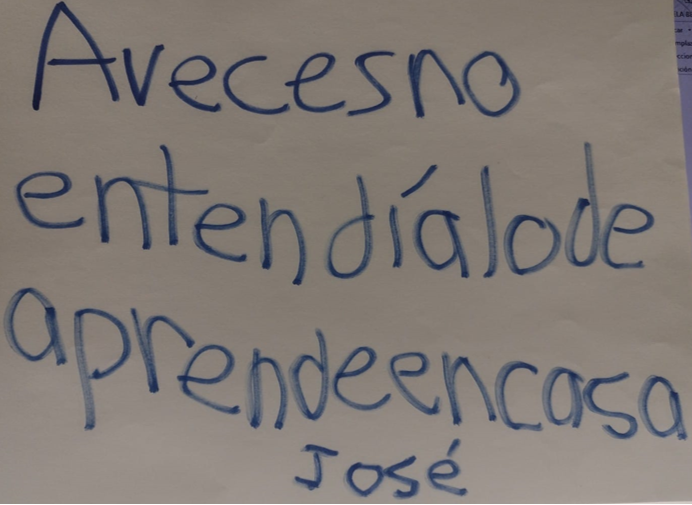 Avecesno
entendíalode
aprendeencasa
José